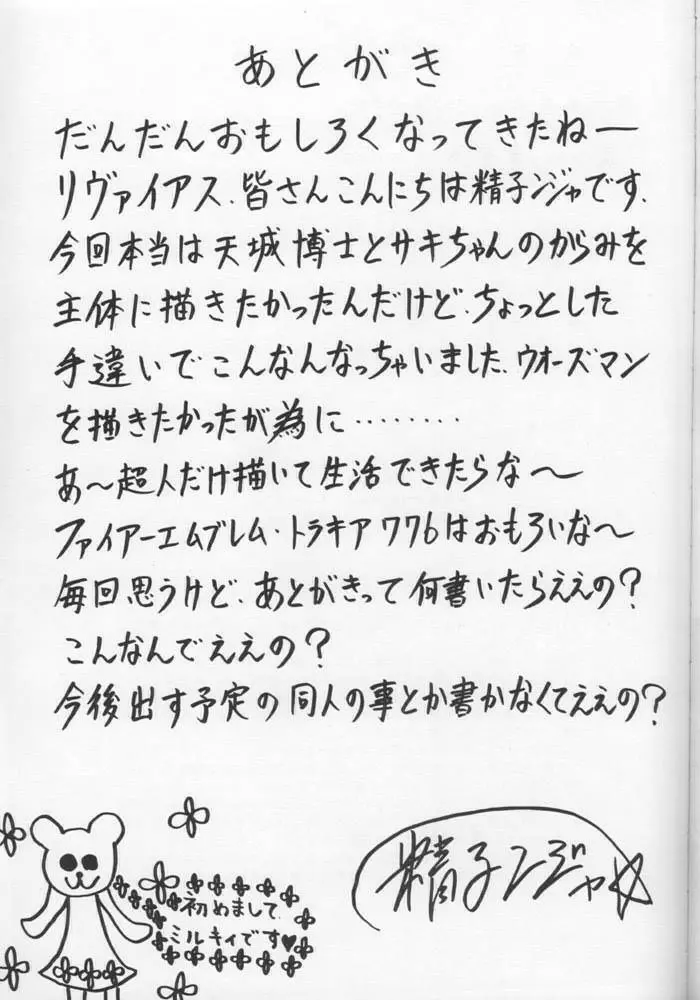 あとがき
だんだんおもしろくなってきたねー
リヴァイアス、皆さんこんにちは精子ンジャです、
今回本当は天城博士とサキちゃんのがらみを
主体に描きたかったんだけど、ちょっとした
手違いでこんなんなっちゃいました、ウオーズマン
を描きたかったが為に………
あ〜超人だけ描いて生活できたらな〜
ファイアーエムブレム・トラキア776はおもろいな〜
毎回思うけど、あとがきって何書いたらええの?
こんなんでええの?
今後出す予定の同人の事とか書かなくてええの?
初めまして、
ミルキィです♥
精子ンジャ☆